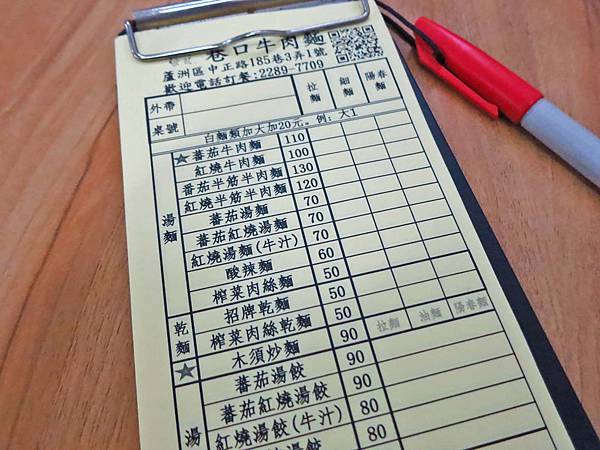 巷口牛肉麵
蘆洲區中正路185巷3弄1號
歡迎電話訂餐:2289-7709
外帶 拉麵 細麵 陽春麵
桌號
白麵類加大加20元。例:大1
湯麵
★蕃茄牛肉麵 110
紅燒牛肉麵 100
番茄半筋半肉麵 130
紅燒半筋半肉麵 120
蕃茄湯麵 70
蕃茄紅燒湯麵 70
紅燒湯麵(牛汁) 70
酸辣麵 60
榨菜肉絲麵 50
乾麵
招牌乾麵 50
榨菜肉絲乾麵 50 拉麵 油麵 陽春麵
★ 木須炒麵 90
湯
蕃茄湯餃 90
蕃茄紅燒湯餃 90
紅燒湯餃(牛汁) 80
湯餃 80